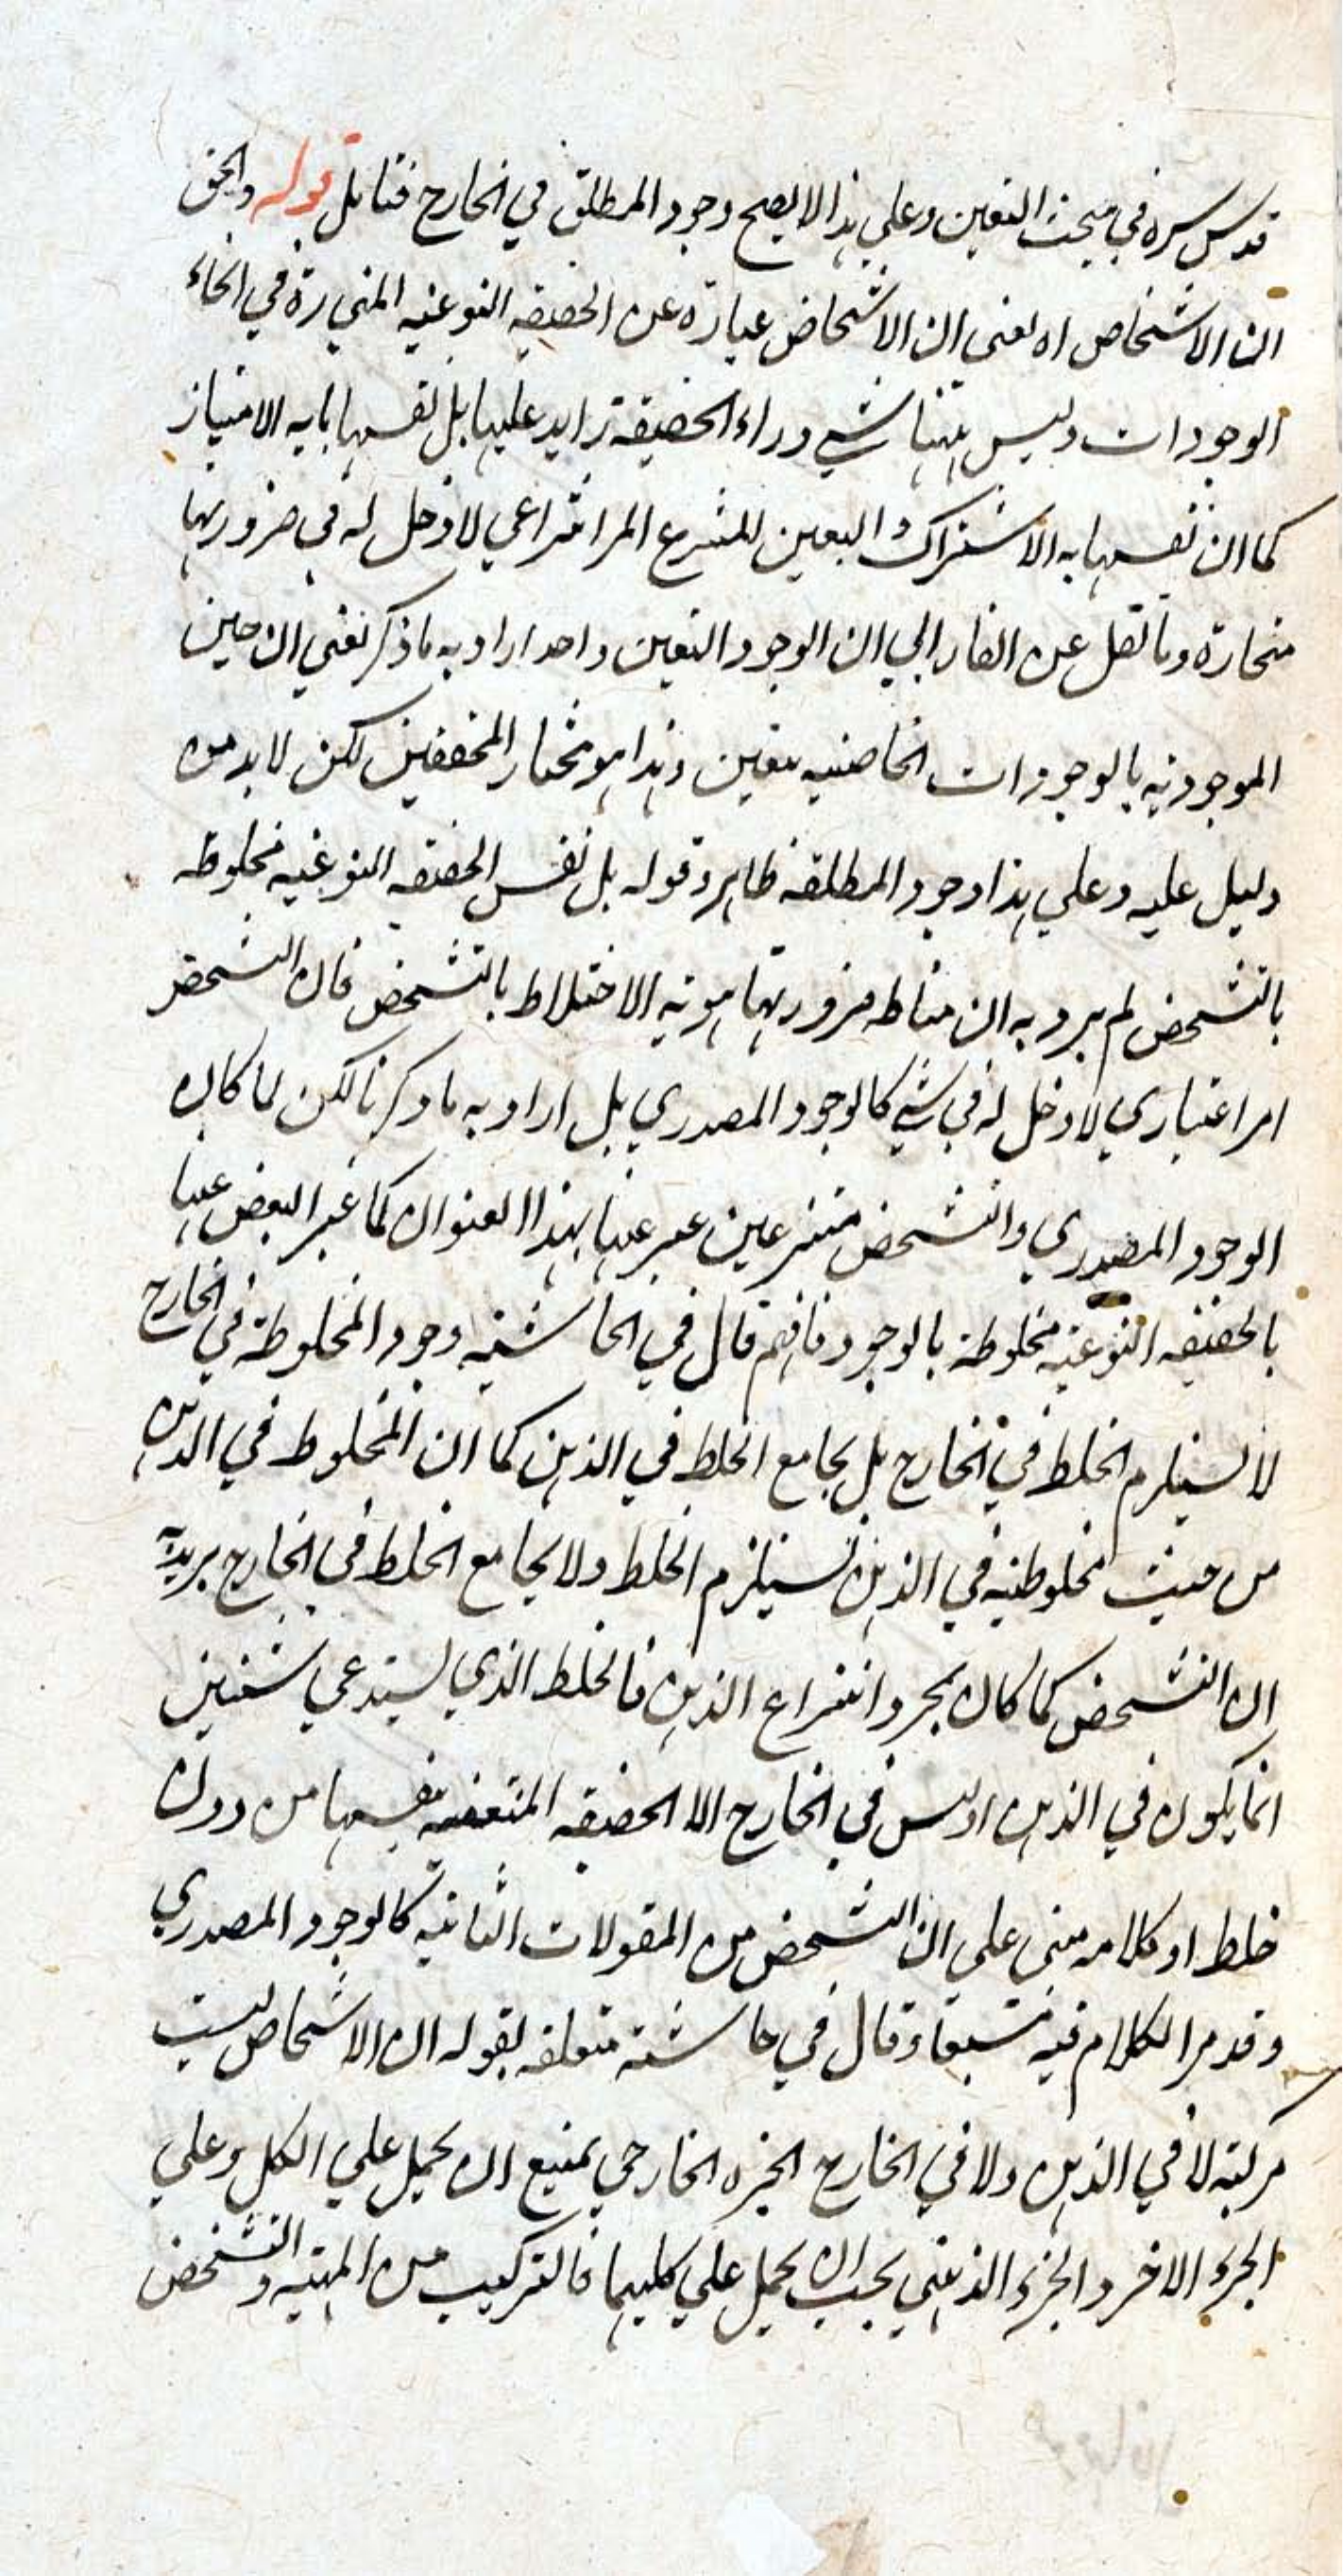 قدس سره في مبحث التعين وعلي هذا لا يصح وجود المطلق في الخارج فتامل قوله والحق
ان الاشخاص اه يعني ان الاشخاص عبارة عن الحقيقه النوعيه في انحاء
الوجودات وليس هنا شي وراء الحقيقة زايد عليها بل نفسها ما به الامتياز
كما ان نفسها به الاشتراك والتعين امر انتراعي لا دخل له في
منحازة وما نقل عن الفارابي ان الوجود والتعين واحد اراد به ما ذكر يعني ان حين
الموجوديه بالوجودات الخاصه يتعين وهذا هو مختار المحققين لكن لا بد من
دليل عليه وعلي هذا وجود المطلقه ظاهر وقوله بل نفس الحقيقه النوعيه مخلوطه
بالتشخص لم يرد به ان مناط هويه الاختلاط بالتشخص فان التشخص
امر اعتباري لا دخل له في شي كالوجود المصدري بل اراد به ما ذكرنا لكن لما كان
الوجود المصدري والتشخص منتزعين عبر عنها بهذا العنوان كما عبر البعض عنها
بالحقيقه النوعيه مخلوطة بالوجود فافهم قال في الحاشيه وجود المخلوطة في الخارج
لا يستلزم الخلط في الخارج بل يجامع الخلط في الذهن كما ان المخلوط في الذهن
من حيث مخلوطيته في الذهن يستلزم الخلط ولا يجامع الخلط في الخارج يريد به
ان التشخص كما كان بمجرد انتزاع الذهن فالخلط الذي يستدعي شيئين
انما يكون في الذهن اذ ليس في الخارج الا الحقيقه المتعينه بنفسها من دون
خلط او كلامه مبني علي ان التشخص من المقولات الثانيه كالوجود المصدري
وقد مر الكلام فيه مشبعا وقال في حاشية متعلقه بقوله ان الاشخاص ليست
مركبة لا في الذهن ولا في الخارج الجزء الخارجي يمتنع ان يحمل علي الكل وعلي
الجزء الاخر والجزء الذهني يجب ان يحمل علي كليهما فالتركيب من المهيه والتشخص